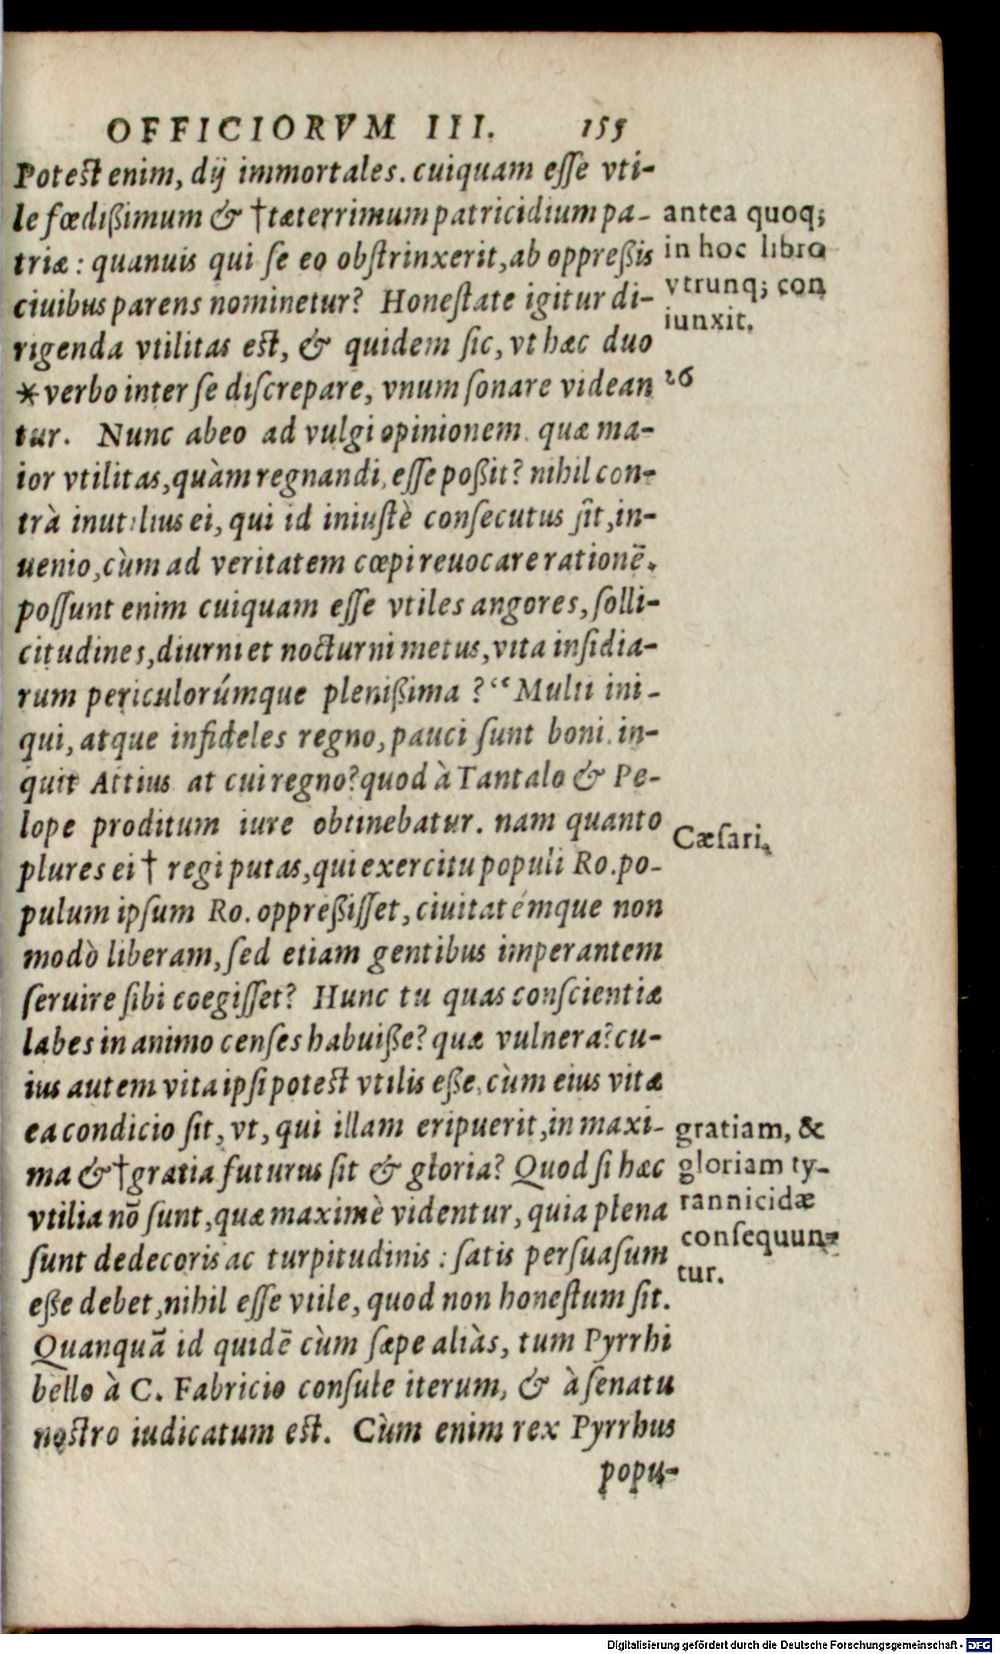 OFFICIORVM III. 155
Potest enim, dij immortales. cuiquam esse vti-
le fœdißimum & †tæterrimum patricidium pa-
triæ: quanuis qui se eo obstrinxerit, ab oppreßis
ciuibus parens nominetur? Honestate igitur di-
rigenda vtilitas est, & quidem sic, vt hæc duo
*verbo inter se discrepare, vnum sonare videan
tur. Nunc abeo ad vulgi opinionem. quæ ma-
ior vtilitas, quàm regnandi, esse poßit? nihil con-
trà inutilius ei, qui id iniustè consecutus sit, in-
uenio, cùm ad veritatem cœpi reuocare rationẽ.
possunt enim cuiquam esse vtiles angores, solli-
citudines, diurni et nocturni metus, vita insidia-
rum periculorúmque plenißima? “Multi ini-
qui, atque infideles regno, pauci sunt boni. in-
quit Attius at cui regno? quod à Tantalo & Pe-
lope proditum iure obtinebatur. nam quanto
plures ei † regi putas, qui exercitu populi Ro. po-
pulum ipsum Ro. oppreßisset, ciuitatémque non
modò liberam, sed etiam gentibus imperantem
seruire sibi coegisset? Hunc tu quas conscientiæ
labes in animo censes habuiße? quæ vulnera? cu-
ius autem vita ipsi potest vtilis eße, cùm eius vitæ
ea condicio sit, vt, qui illam eripuerit, in maxi-
ma & †gratia futurus sit & gloria? Quod si hæc
vtilia nõ sunt, quæ maximè videntur, quia plena
sunt dedecoris ac turpitudinis: satis persuasum
eße debet, nihil esse vtile, quod non honestum sit.
Quanquã id quidẽ cùm sæpe aliàs, tum Pyrrhi
bello à C. Fabricio consule iterum, & à senatu
nostro iudicatum est. Cùm enim rex Pyrrhus
popu-
antea quoq;
in hoc libro
vtrunq; con
iunxit.
26
Cæsari.
gratiam, &
gloriam ty-
rannicidæ
consequun-
tur.
Digitalisierung gefördert durch die Deutsche Forschungsgemeinschaft - DFG